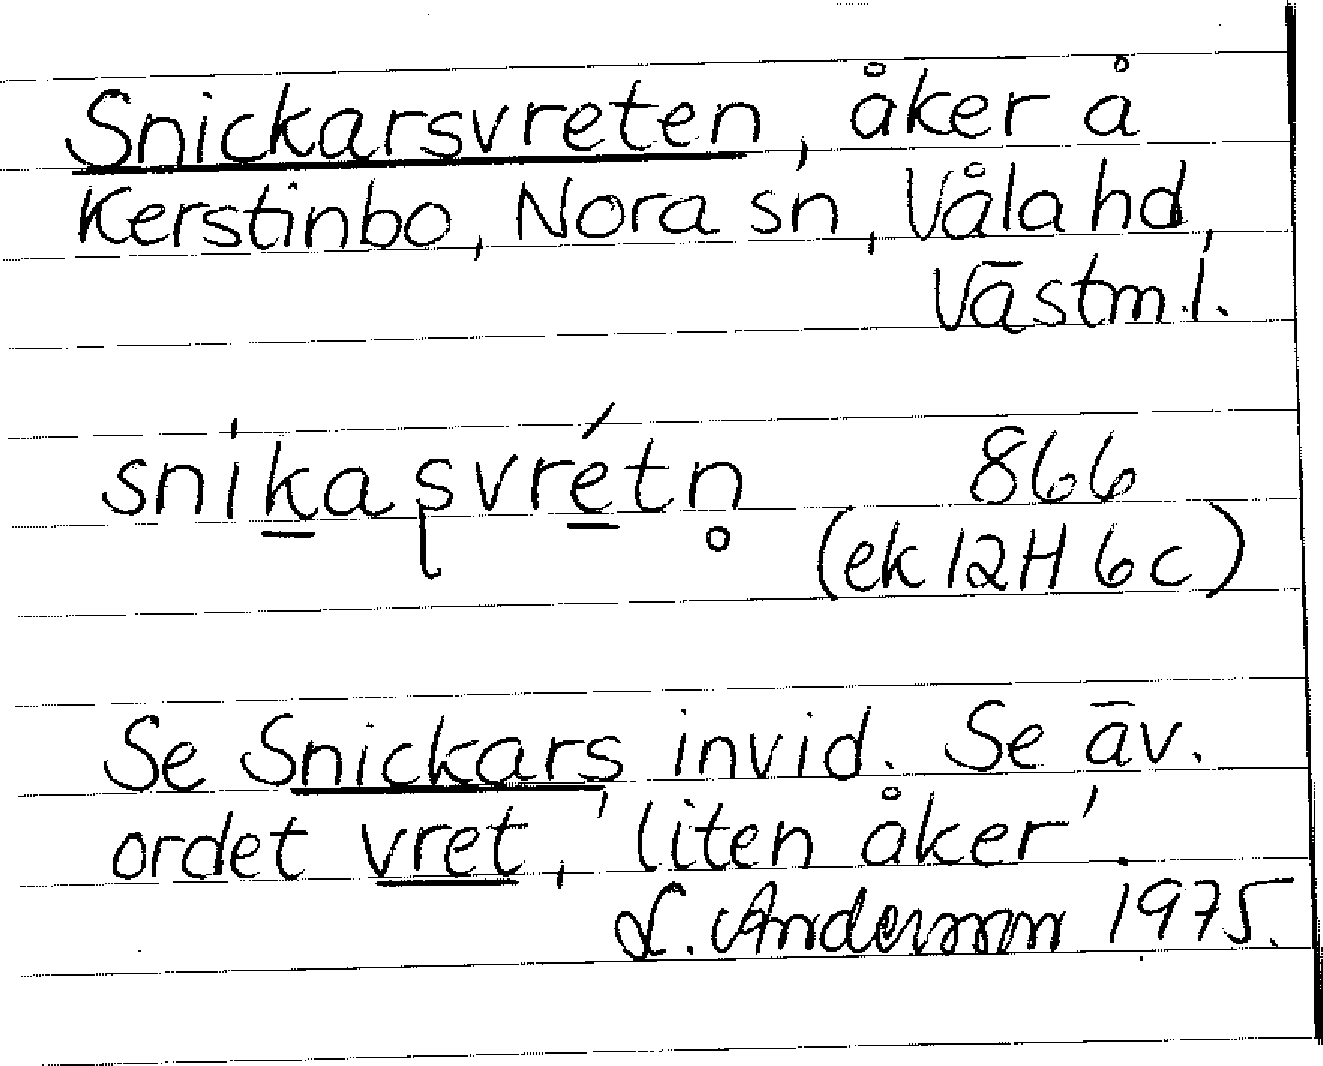 Snickarsvreten, åker å
Kerstinbo, Nora sn, Våla hd,
Västm.l.
sníka̠ʂvré̠tn̥ 866
(ek 12H 6c)
Se Snickars invid. Se äv.
ordet vret, 'liten åker'.
L. Andersson 1975.